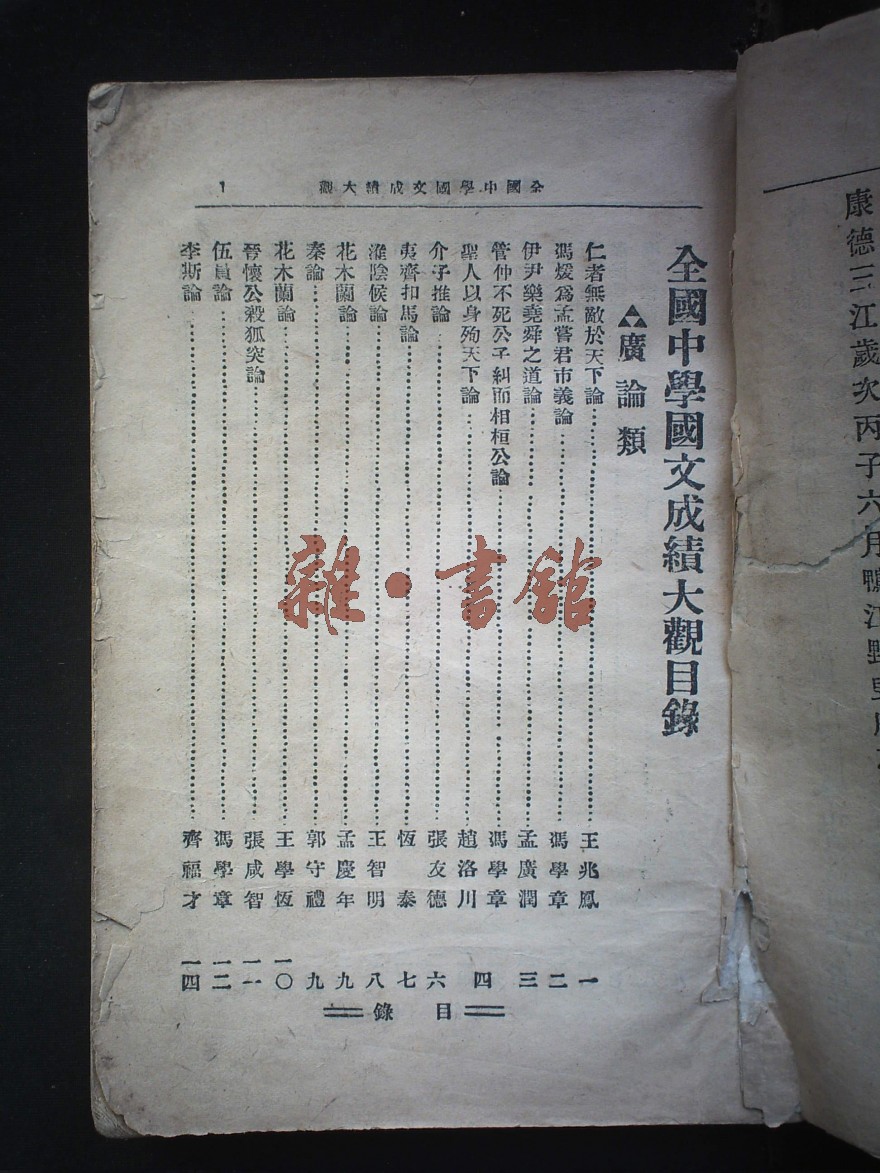 康德三江歲次丙子六月鴨江野
全國中學國文成績大觀 1
全國中學國文成績大觀目錄
廣論類
仁者無敵於天下論 王兆鳳 一
馮煖為孟嘗君市義論 馮學章 二
伊尹樂堯舜之道論 孟廣潤 三
管仲不死公子糾而相桓公論 馮學章 四
聖人以身殉天下論 趙洛川
介子推論 張友德 六
夷齊扣馬論 恆泰 七
淮陰候論 王智明 八
花木蘭論 孟慶年 九
秦論 郭守禮 九
花木蘭論 王學恆 一〇
晉懷公殺狐突論 張咸智 一一
伍員論 馮學章 一二
李斯論 齊福才 一四
目錄
雜·書館